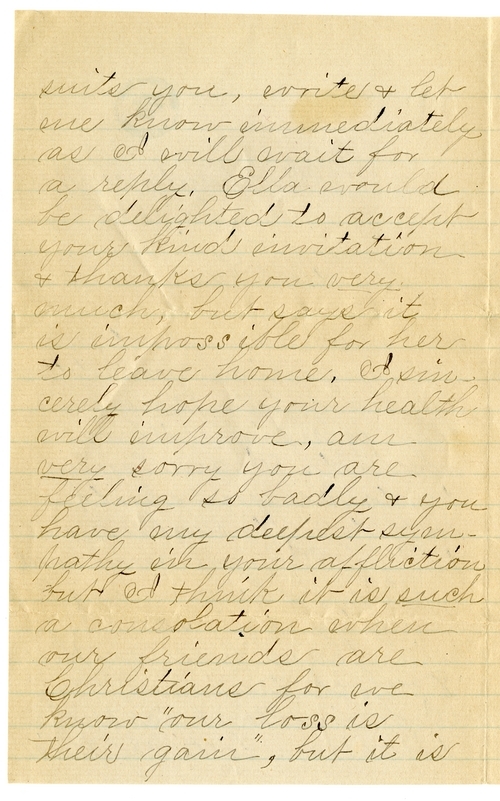 suits you, write & let
me know immediately
as I will wait for
a reply. Ella would
be delighted to accept
your kind invitation
& thanks you very
much, but says it
is impossible for her
to leave home. I sin-
cerely hope your health
will improve, am
very sorry you are
feeling so badly & you
have my deepest sym-
pathy in your affliction
but I think it is such
a consolation when
our friends are
Christians for we
know "our loss is
their gain", but it is